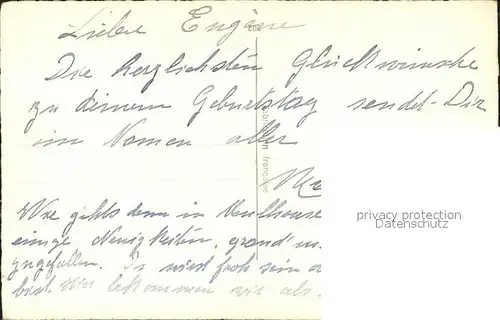 Liebe Eugène
Die herzlichsten Glückwünsche
zu deinem Geburtstag sendet Dir
im Namen aller
Wie gehts denn in Mulhouse
einige Neuigkeiten, grand'm.
zugefallen. wird froh sein
bist. bekommen wir als.
française
privacy protection
www.ansichtskartenversand.com